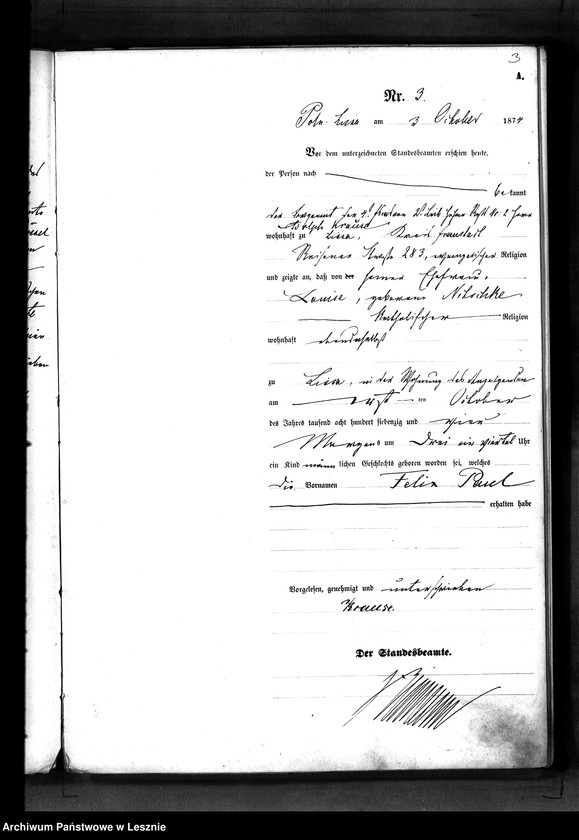 3
A.
Nr. 3.
Poln. Lissa am 3 October 1874
Vor dem unterzeichneten Standesbeamten erschien heute,
der Person nach
bekannt
der Sergeant
Adolph Krause
wohnhaft zu Lissa, Kreis Fraustadt
Reisener Straße 283, evangelischer Religion
und zeigte an, daß von der seiner Ehefrau,
Louise, geborene Nitschke
katholischer Religion
wohnhaft ebendaselbst
zu Lissa, in der Wohnung des Anzeigenden
am erst ten October
des Jahres tausend acht hundert siebenzig und vier
Morgens um drei ein viertel Uhr
ein Kind männlichen Geschlechts geboren worden sei, welches
die Vornamen Felix Paul
erhalten habe
Vorgelesen, genehmigt und unterschrieben
Krause.
Der Standesbeamte.
Archiwum Państwowe w Lesznie